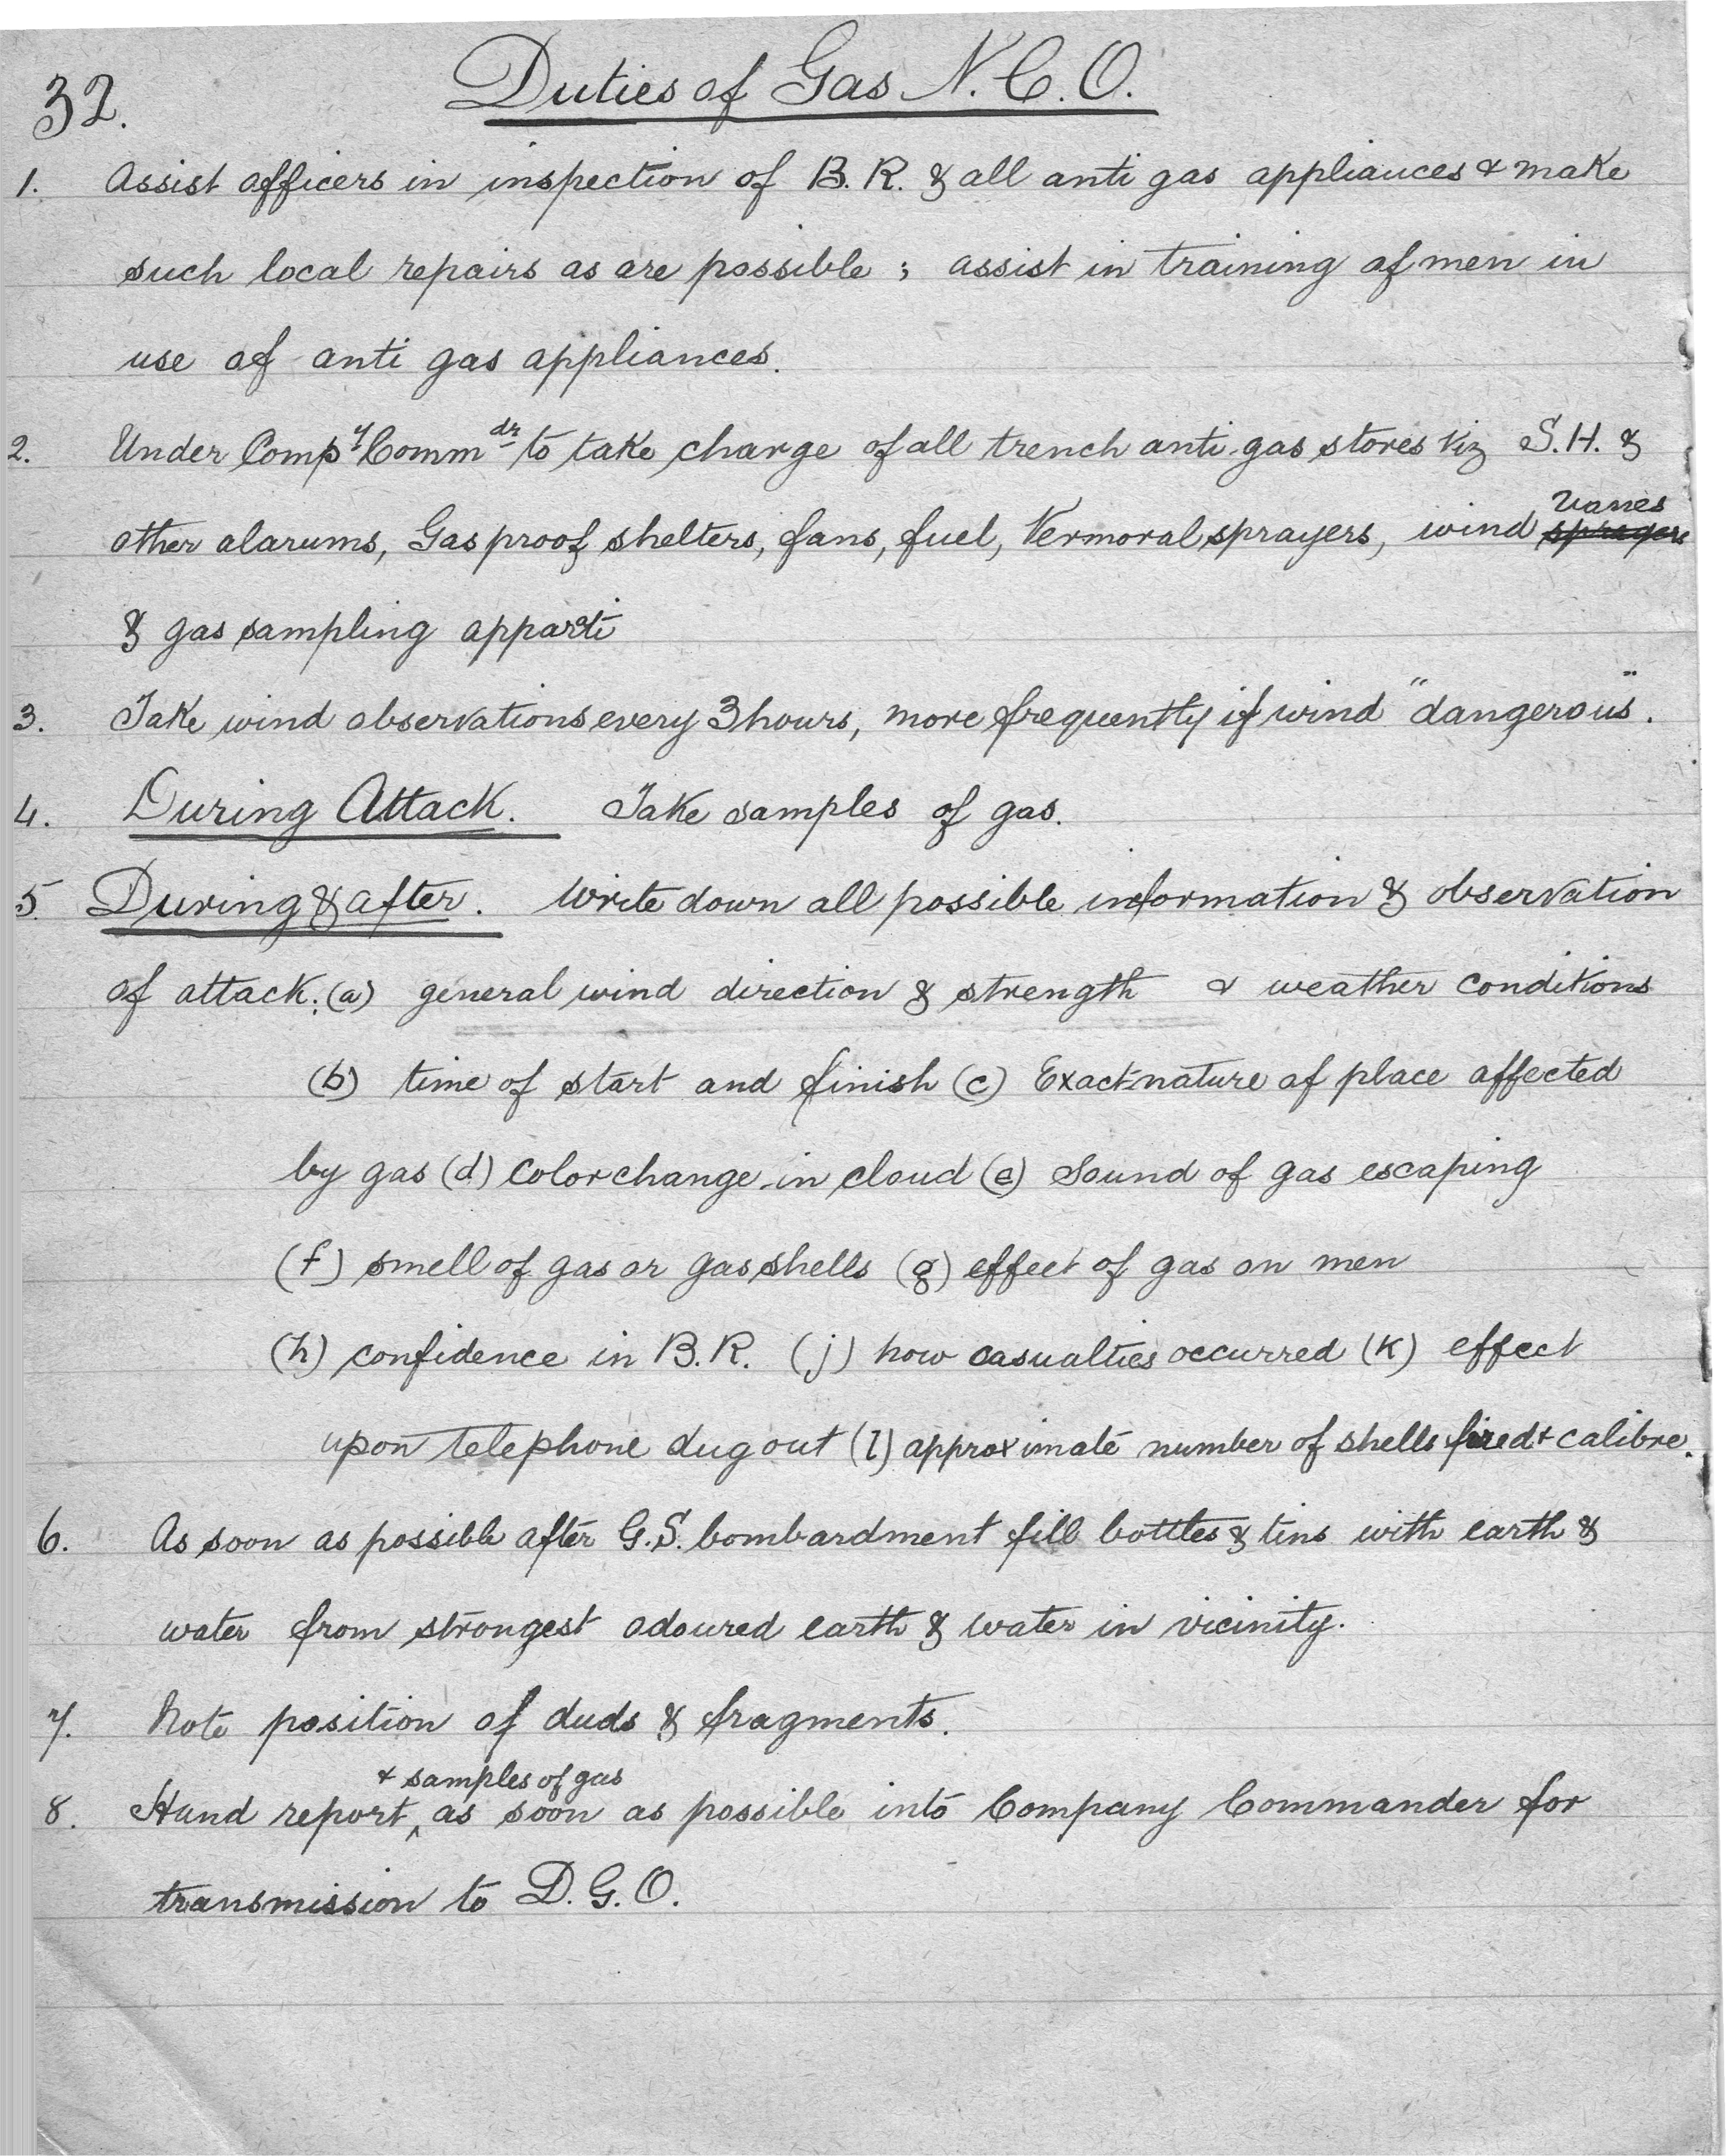 32.
Duties of Gas N.C.O.
1. Assist officers in inspection of B.R. & all anti gas appliances & make
such local repairs as are possible ; assist in training of men in
use of anti gas appliances.
2. Under Compy Commdr to take charge of all trench anti-gas stores viz S.H. &
vanes
other alarums, Gas proof shelters, fans, fuel, Vermoral sprayers, wind sprayers
& gas sampling apparati
3. Take wind observations every 3 hours, more frequently if wind "dangerous".
4. During Attack. Take samples of gas.
5 During & after. Write down all possible information & observation
of attack: (a) general wind direction & strength & weather conditions
(b) time of start and finish (c) Exact nature of place affected
by gas (d) color change in cloud (e) Sound of gas escaping
(f) smell of gas or gas shells (g) effect of gas on men
(h) confidence in B.R. (j) how casualties occurred (k) effect
upon telephone dug out (l) approximate number of shells fired & calibre.
6. As soon as possible after G.S. bombardment fill bottles & tins with earth &
water from strongest odoured earth & water in vicinity.
7. Note position of duds & fragments.
& samples of gas
8. Hand report ^ as soon as possible into Company Commander for
transmission to D.G.O.